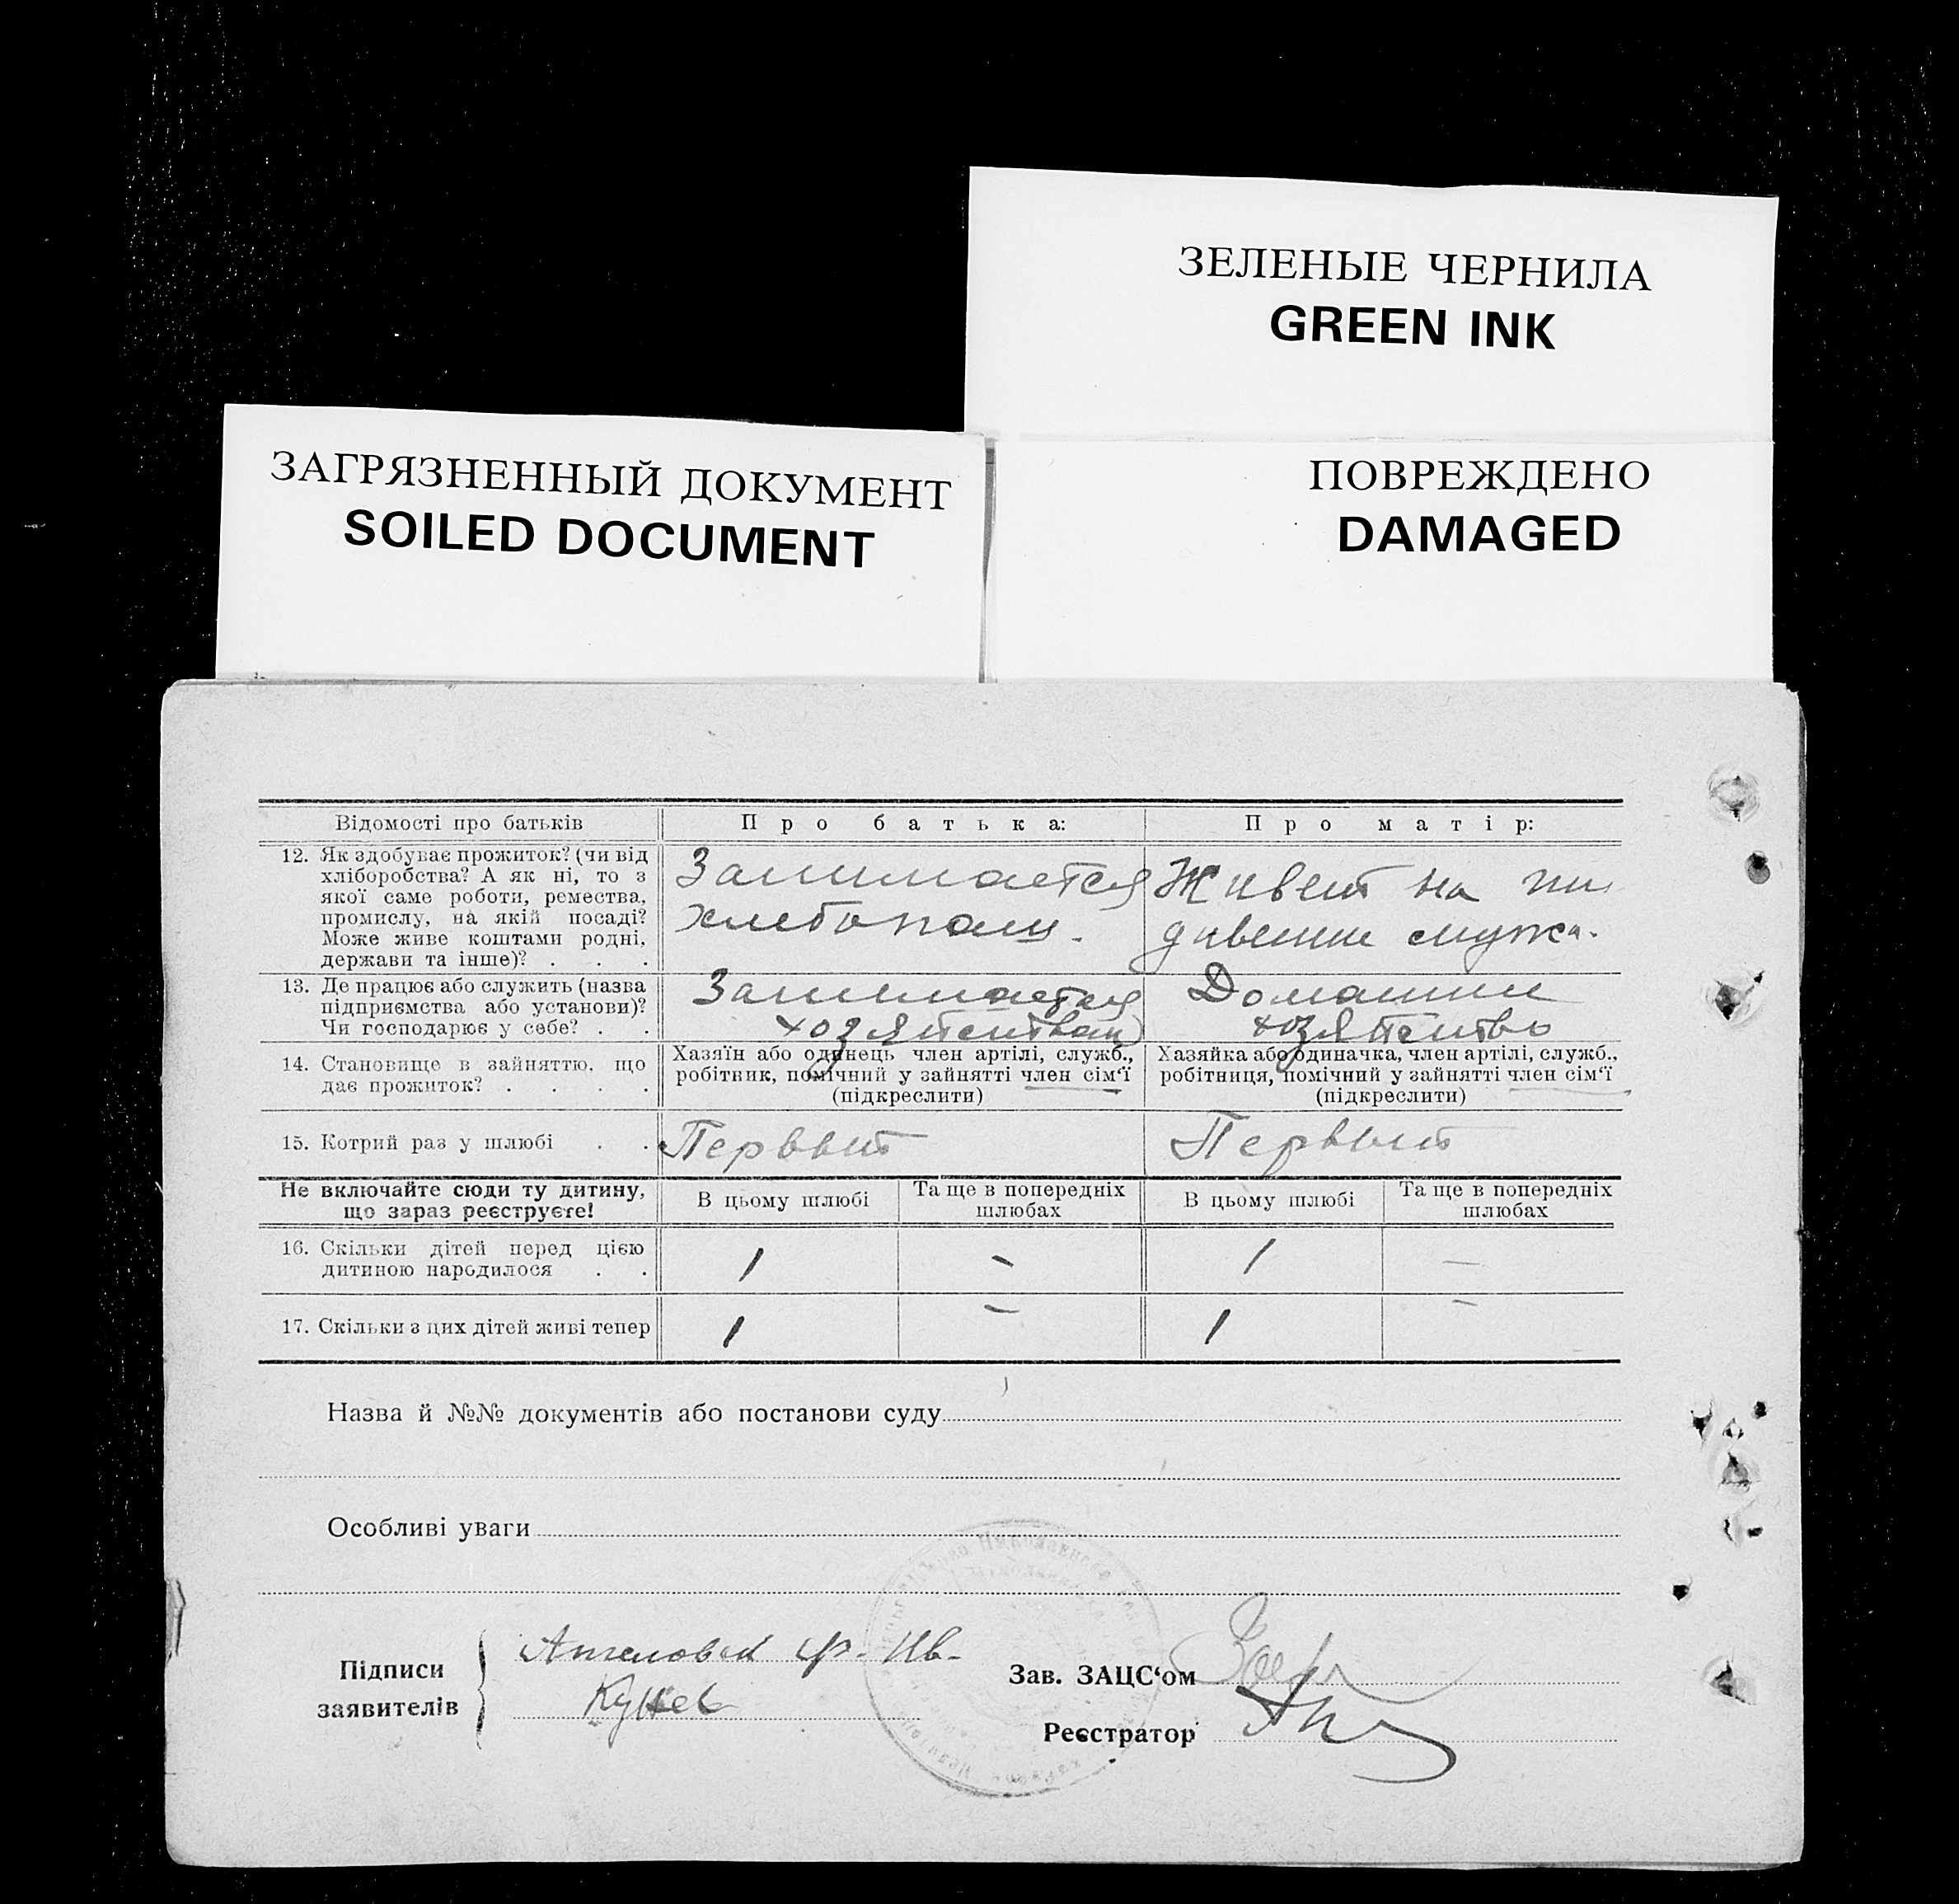 ЗЕЛЕНЫЕ ЧЕРНИЛА
GREEN INK
ЗАГРЯЗНЕННЫЙ ДОКУМЕНТ
SOILED DOCUMENT
ПОВРЕЖДЕНО
DAMAGED
Відомості про батьків
Про батька:
Про матір:
12. Як здобуває прожиток? (чи від
хліборобства? А як ні, то з
якої саме роботи, ремества,
промислу, на якій посаді?
Може живе коштами родні,
держави та інше)? . . .
Занимается
Живет на
мужа.
13. Де працює або служить (назва
підприємства або установи)?
Чи господарює у себе? . .
Занимается
Домашнее
14. Становище в зайняттю, що
дає прожиток? . . . .
Хазяїн або одинець член артілі, служб.,
робітник, помічний у зайнятті член сім'ї
(підкреслити)
Хазяйка або одиначка, член артілі, служб.,
робітниця, помічний у зайнятті член сім'ї
(підкреслити)
15. Котрий раз у шлюбі . .
Первый
Первый
Не включайте сюди ту дитину,
що зараз реєструєте!
В цьому шлюбі
Та ще в попередніх
шлюбах
В цьому шлюбі
Та ще в попередніх
шлюбах
16. Скільки дітей перед цією
дитиною народилося . .
1 - 1 -
17. Скільки з цих дітей живі тепер
1 - 1 -
Назва й №№ документів або постанови суду
Особливі уваги
Підписи
заявителів
Кунев
Зав. ЗАЦС'ом
Реєстратор